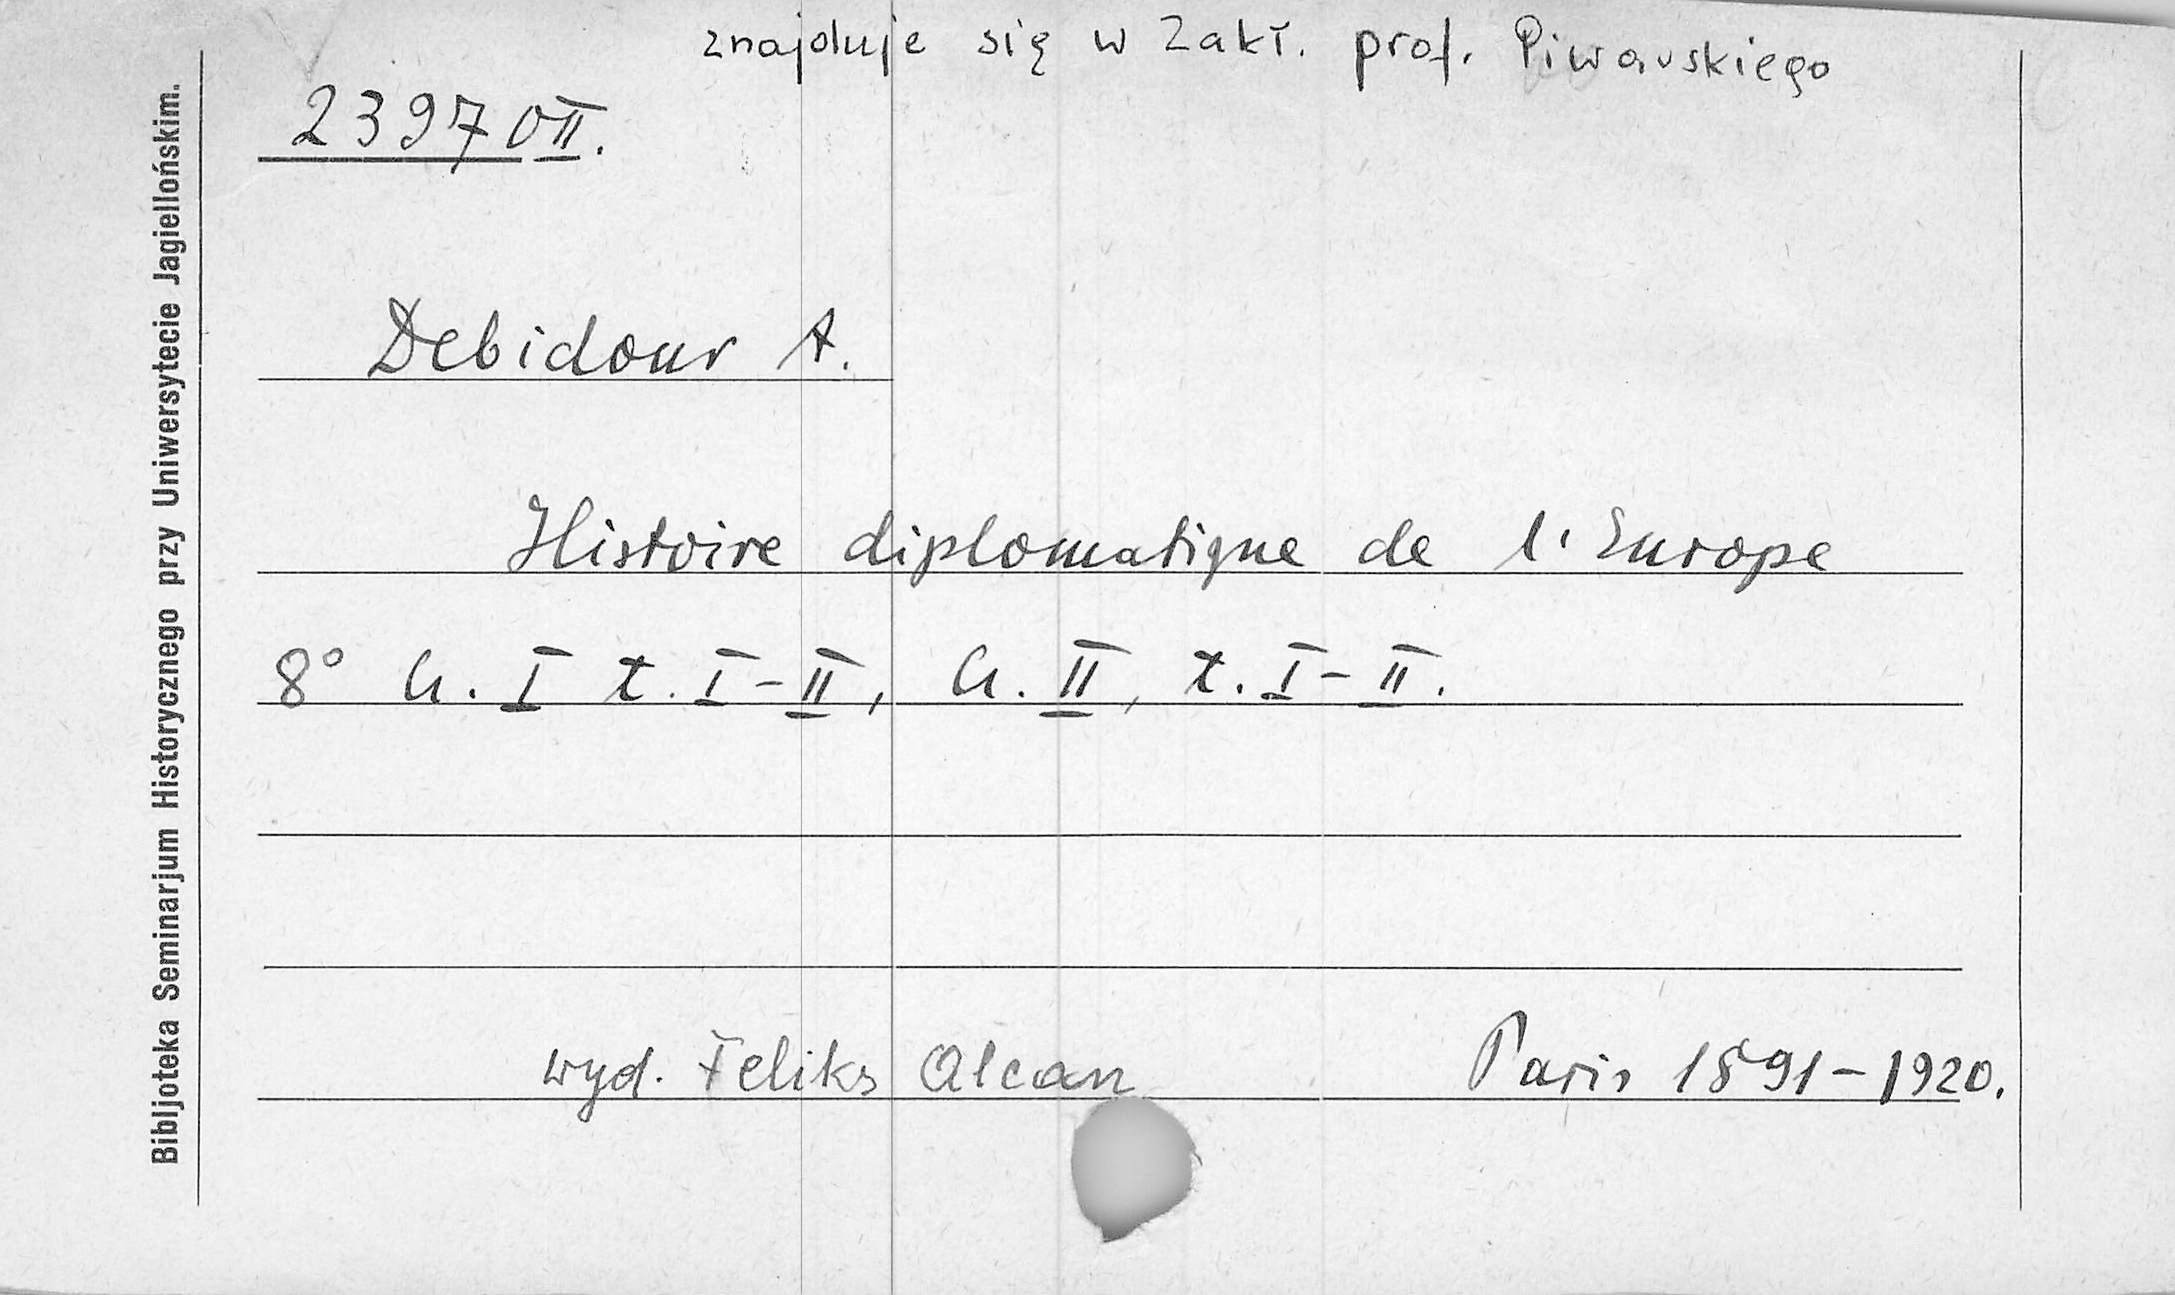 znajduje się w Zakł. prof. Piwarskiego
23970II.
Debidour A.
Histoire diplomatique de l'Europe
8° Cz. I t. I-II, Cz. II, t. I-II.
wyd. Feliks Alcan Paris 1891-1920.
Bibljoteka Seminarjum Historycznego przy Uniwersytecie Jagiellońskim.